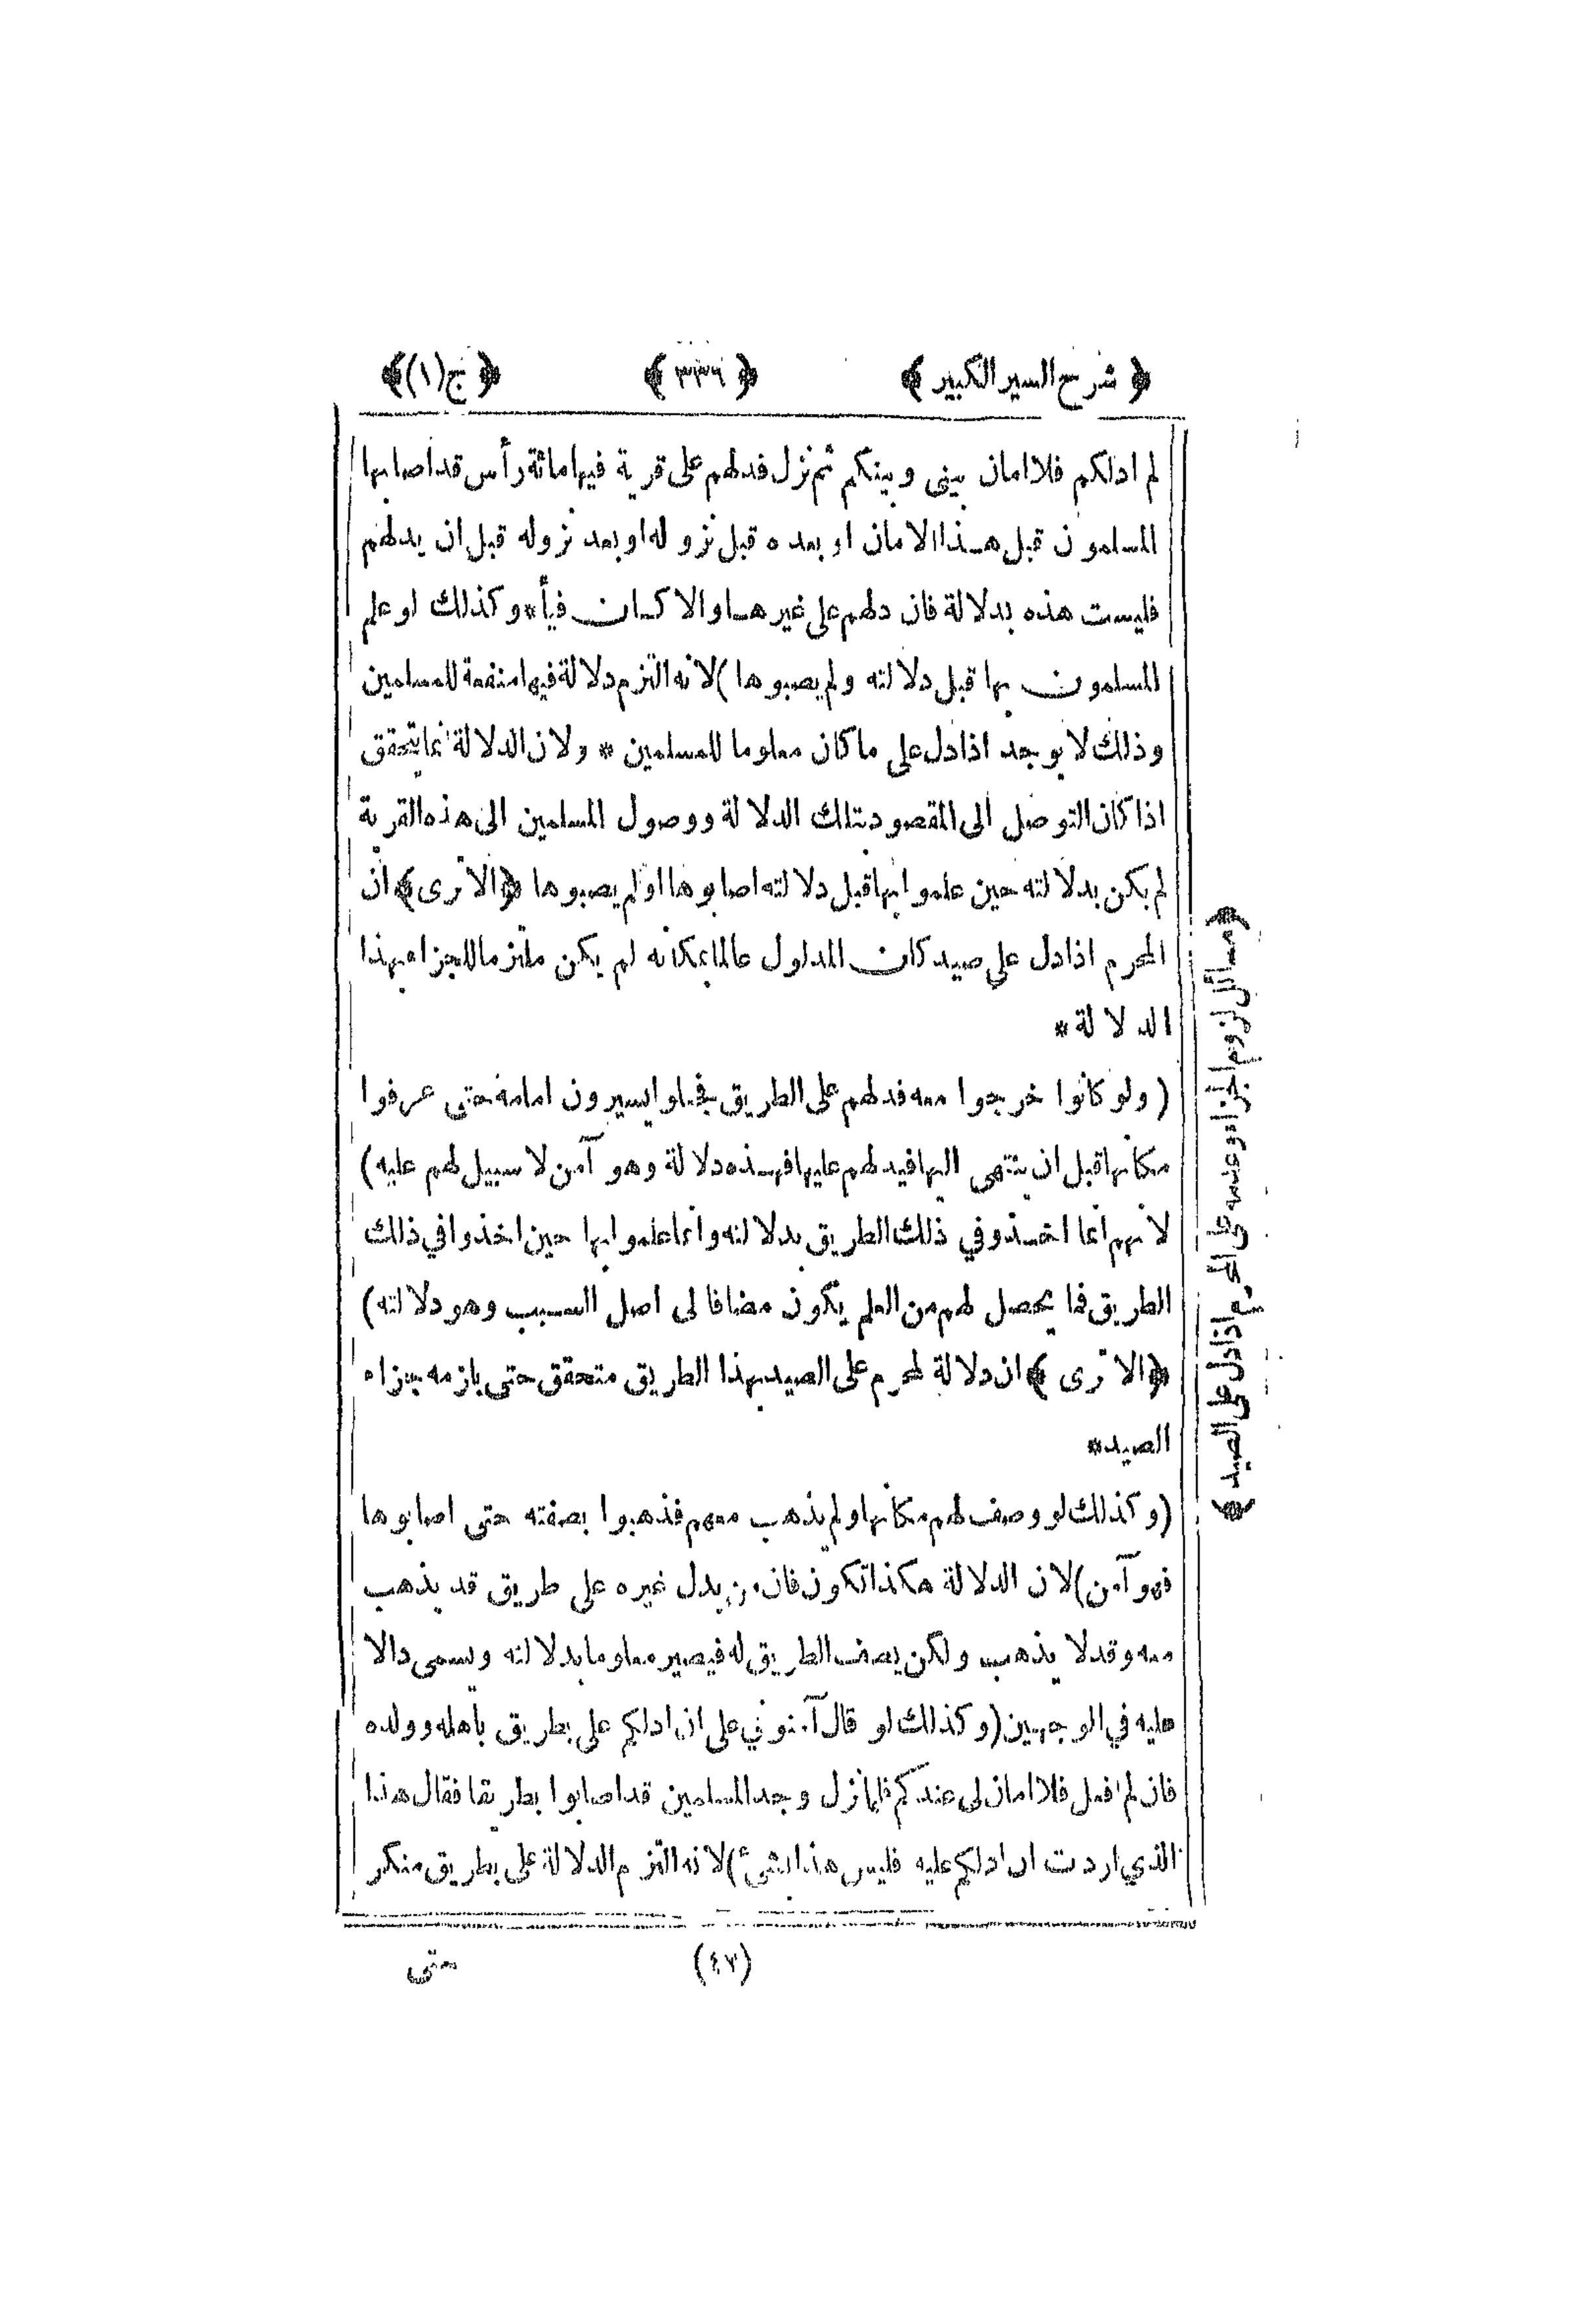 ﴿ شرح السير الكبير ﴾ ﴿ ٣٣٦ ﴾ ﴿ ج (١) ﴾
لم ادلكم فلا امان بينى وبينكم ثم نزل فدلهم على قرية فيها مائة رأس قد اصابها
المسلمون قبل هذا الامان او بعده قبل نزوله او بعد نزوله قبل ان يدلهم
فليست هذه بدلالة فان دلهم على غيرها والا كان فيأ * وكذلك لو علم
المسلمون بها قبل دلالته ولم يصيبوها ) لانه التزم دلالة فيها منفعة للمسلمين
وذلك لا يوجد اذا دل على ما كان معلوما للمسلمين * ولان الدلالة انما يتحقق
اذا كان التوصل الى المقصود بتلك الدلالة ووصول المسلمين الى هذه القرية
لم يكن بدلالته حين علموا بها قبل دلالته اصابوها او لم يصيبوها ﴿ الا ترى ﴾ ان
المحرم اذا دل على صيد كان المدلول عالما بمكانه لم يكن ملتزما للجزاء بهذا
الدلالة *
( ولو كانوا خرجوا معه فدلهم على الطريق فجعلوا يسيرون امامه حتى عرفوا
مكانها قبل ان ينتهى اليها فيدلهم عليها فهذه دلالة وهو آمن لا سبيل لهم عليه )
لانهم انما اخذو في ذلك الطريق بدلالته وانما علموا بها حين اخذوا في ذلك
الطريق فما يحصل لهم من العلم يكون مضافا لى اصل السبب وهو دلالته )
﴿ الا ترى ﴾ ان دلالة لمحرم على الصيد بهذا الطريق متحقق حتى يلزمه جزاء
الصيد *
( وكذلك لو وصف لهم مكانها ولم يذهب معهم فذهبوا بصفته حتى اصابوها
فهو آمن ) لان الدلالة هكذا تكون فان من يدل غيره على طريق قد يذهب
معه وقد لا يذهب ولكن يصف الطريق له فيصير معلوما بدلالته ويسمى دالا
عليه في الوجهين ( وكذلك لو قال آمنوني على ان ادلكم على بطريق باهله وولده
فان لم افعل فلا امان لى عندكم فلما نزل وجد المسلمين قد اصابوا بطريقا فقال هذا
الذي اردت ان ادلكم عليه فليس هذا بشئ ) لانه التزم الدلالة على بطريق منكر
(٤٧) حتى
﴿ مسائل لزوم الجزاء وعدمه على المحرم اذا دل على الصيد ﴾